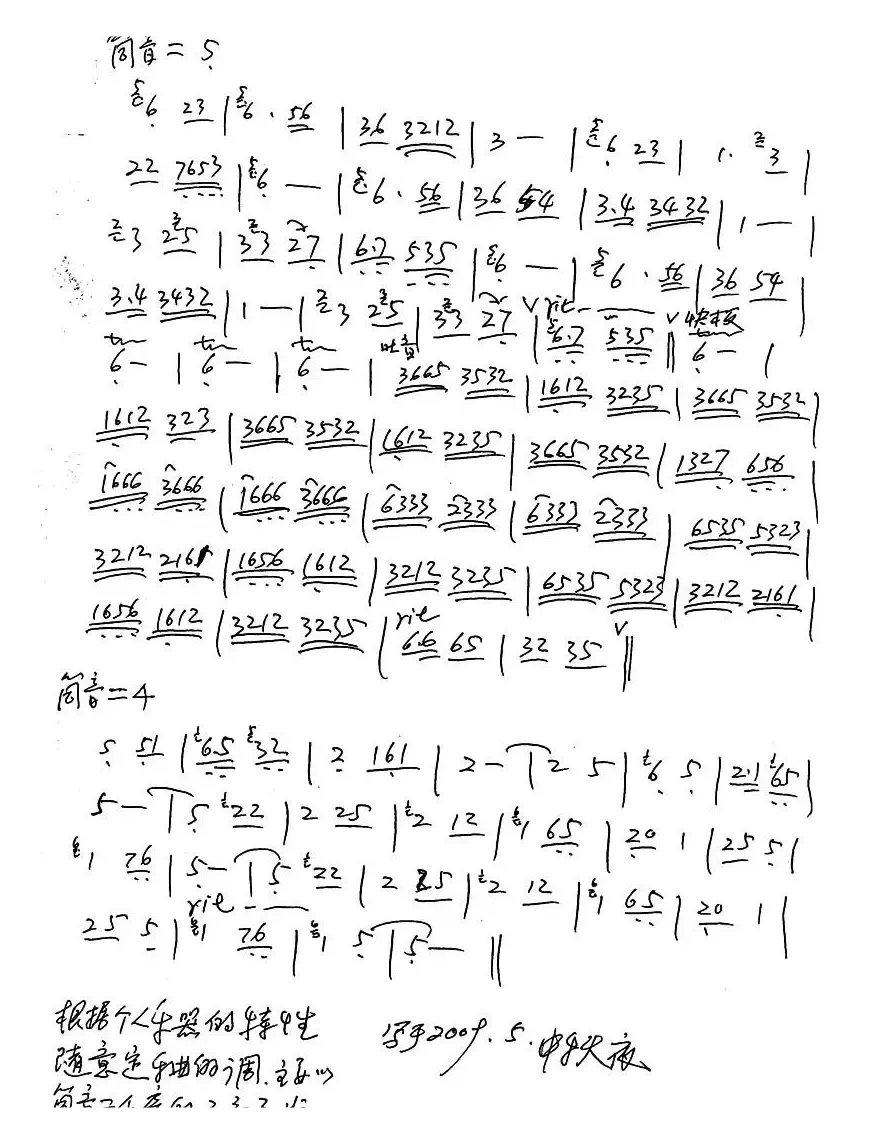 筒音=5
6 23 | 6 · 56 | 36 3212 | 3 — | 6 23 | 1. 3 |
22 7653 | 6 — | 6 · 56 | 36 54 | 3.4 3432 | 1 — |
3 25 | 33 27 | 6.7 535 | 6 — | 6 · 56 | 36 54 |
3.4 3432 | 1 — | 3 25 | 33 27 V | rit 6.7 535 V ‖ 快板 6 — |
tr 6 — | tr 6 — | tr 6 — | 吐音 3665 3532 | 1612 3235 | 3665 3532 |
1612 323 | 3665 3532 | 1612 3235 | 3665 3532 | 1327 656 |
1666 3666 | 1666 3666 | 6333 2333 | 6333 2333 | 6535 5323 |
3212 2161 | 1656 1612 | 3212 3235 | 6535 5323 | 3212 2161 |
1656 1612 | 3212 3235 | rit 6.6 65 | 32 35 V ‖
筒音=4
5 51 | 65 32 | 2 161 | 2 — | 2 5 | 6 5 | 2.1 65 |
5 — | 5 22 | 2 25 | 2 12 | 1 65 | 20 1 | 25 5 |
1 76 | 5 — | 5 22 | 2 25 | 2 12 | 1 65 | 20 1 |
25 5 | rit 1 76 | 1 5 | 5 — ‖
根据个人乐器的特性
随意定乐曲的调.主要以
筒音
写于2009.5.中午